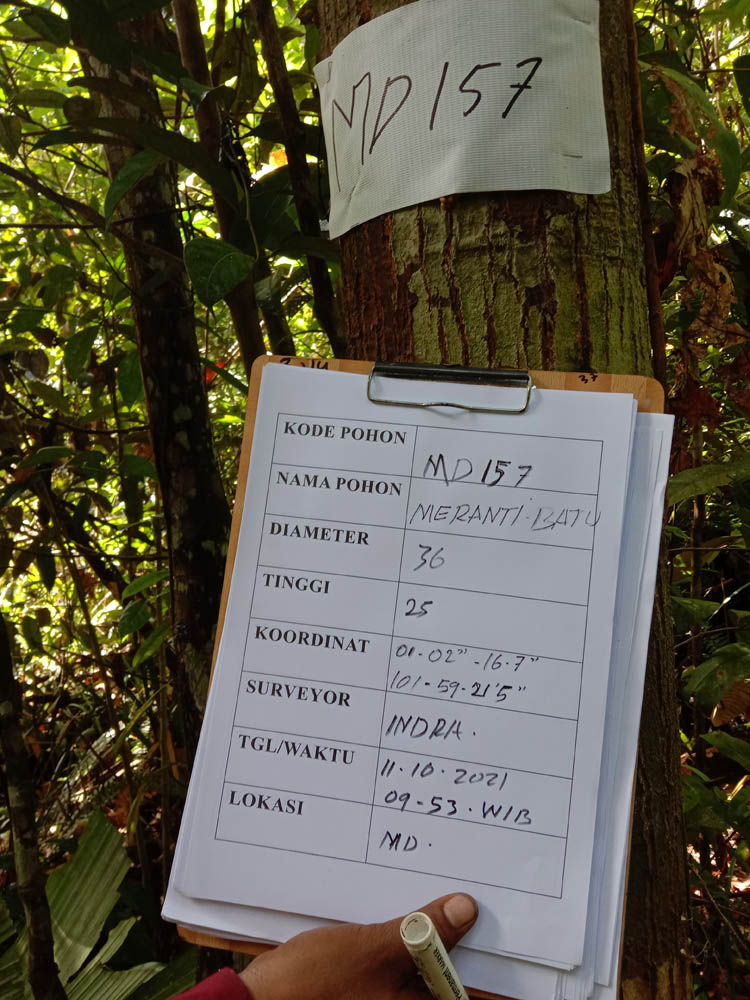 MD 157
KODE POHON
MD 157
NAMA POHON
MERANTI·BATU
DIAMETER
36
TINGGI
25
KOORDINAT
01-02"-16.7"
101-59-21'5"
SURVEYOR
INDRA.
TGL/WAKTU
11.10.2021
09-53.WIB
LOKASI
MD.